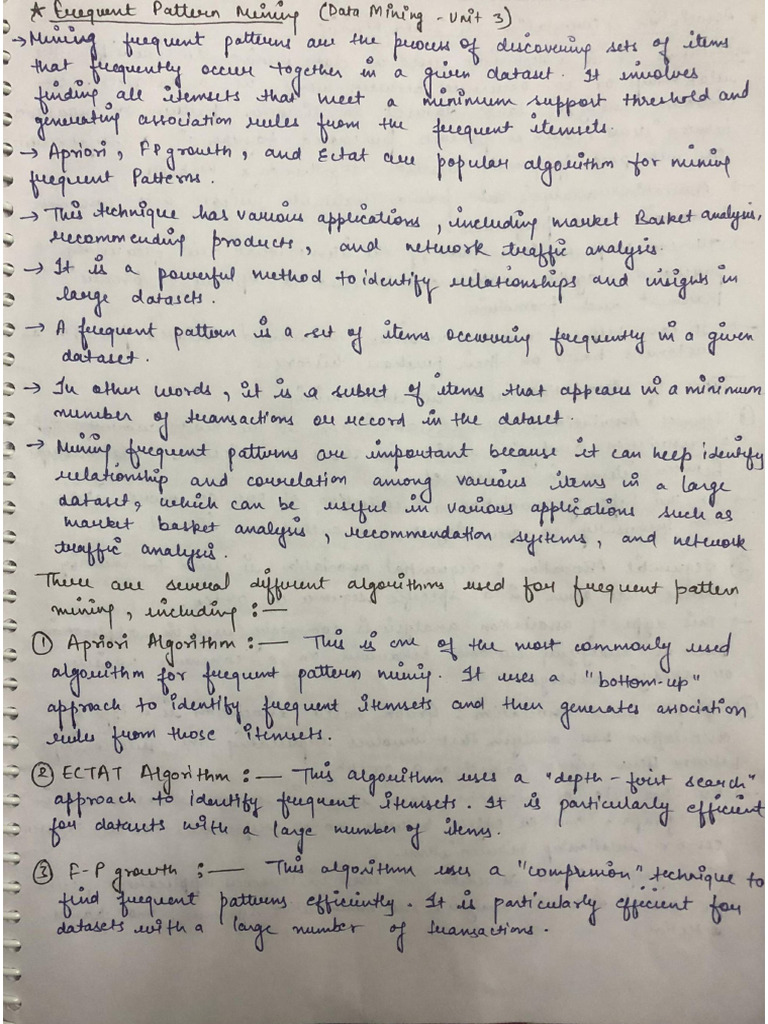 * Frequent Pattern Mining (Data Mining - Unit 3)
→ Mining frequent patterns are the process of discovering sets of items
that frequently occur together in a given dataset. It involves
finding all itemsets that meet a minimum support threshold and
generating association rules from the frequent itemsets.
→ Apriori, FP growth, and Ectat are popular algorithm for mining
frequent Patterns.
→ This technique has various applications, including market Basket analysis,
recommending products, and network traffic analysis.
→ It is a powerful method to identify relationships and insights in
large datasets.
→ A frequent pattern is a set of items occurring frequently in a given
dataset.
→ In other words, it is a subset of items that appears in a minimum
number of transactions or record in the dataset.
→ Mining frequent patterns are important because it can help identify
relationship and correlation among various items in a large
dataset, which can be useful in various applications such as
market basket analysis, recommendation systems, and network
traffic analysis.
There are several different algorithms used for frequent pattern
mining, including :—
① Apriori Algorithm :— This is one of the most commonly used
algorithm for frequent pattern minig. It uses a "bottom-up"
approach to identify frequent itemsets and then generates association
rules from those itemsets.
② ECTAT Algorithm :— This algorithm uses a "depth-first search"
approach to identify frequent itemsets. It is particularly efficient
for datasets with a large number of items.
③ F-P growth :— This algorithm uses a "compression" technique to
find frequent patterns efficiently. It is particularly efficient for
datasets with a large number of transactions.